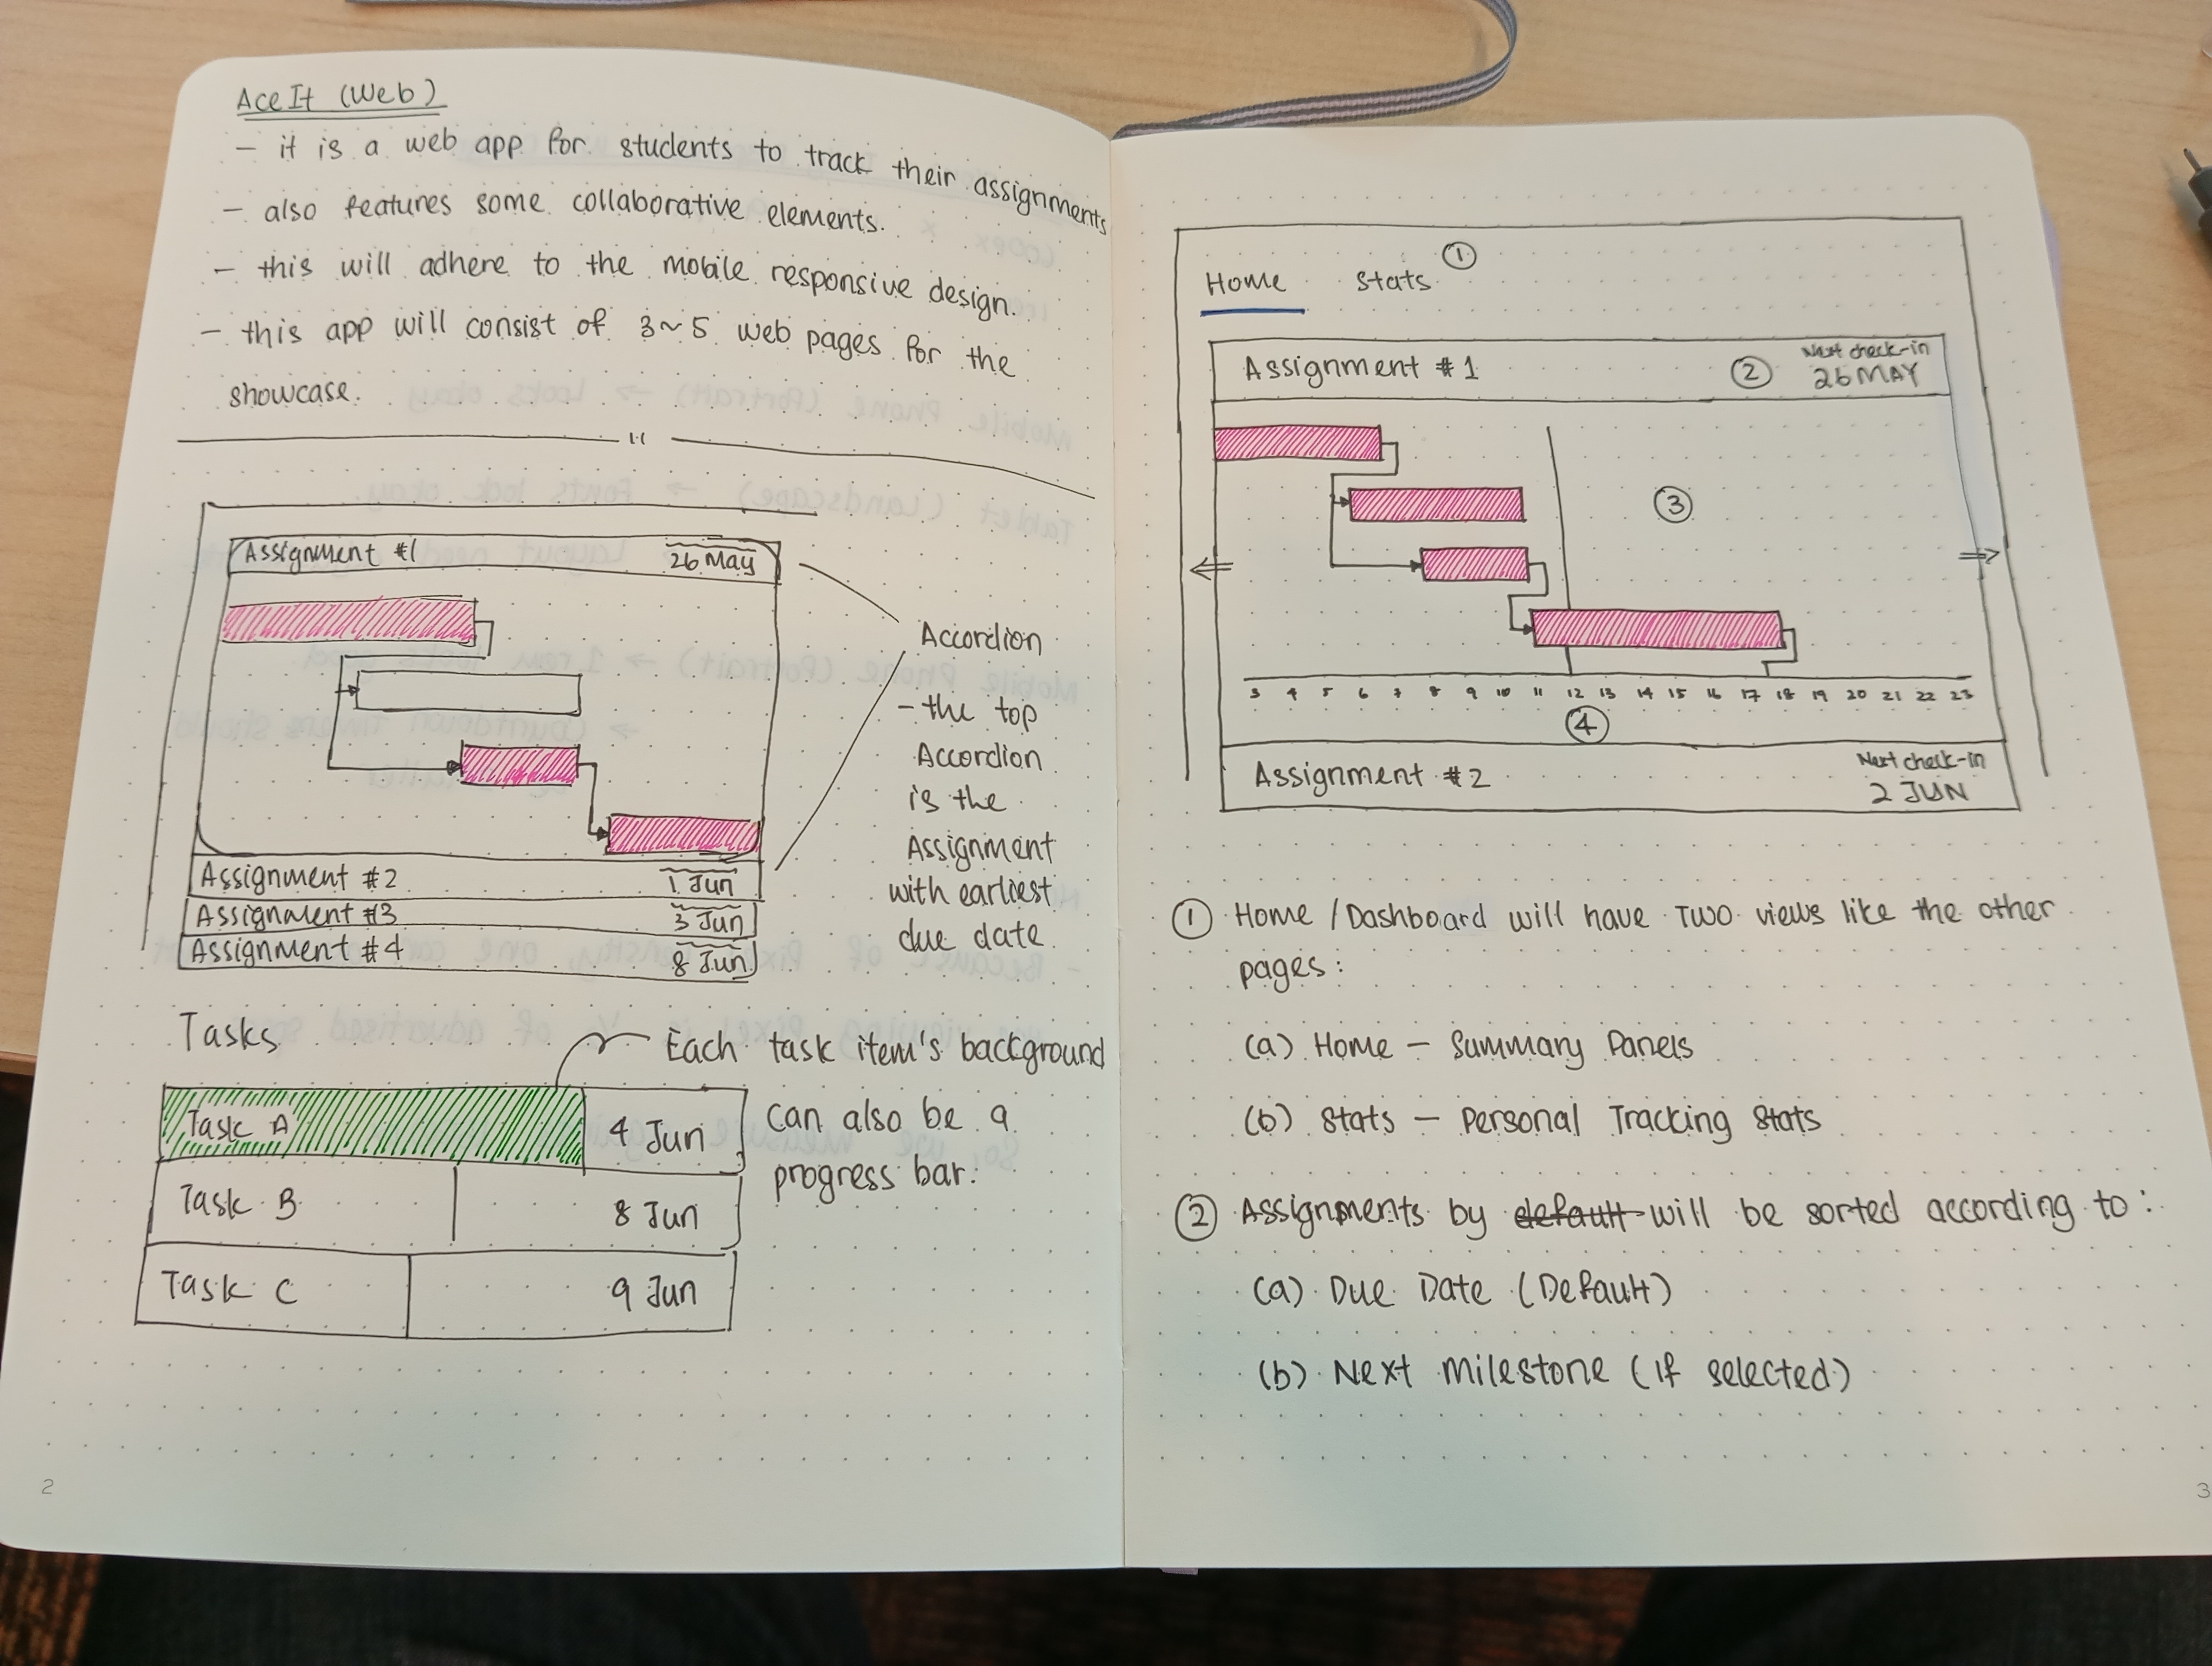 AceIt (Web)
- it is a web app for students to track their assignments
- also features some collaborative elements.
- this will adhere to the mobile responsive design.
- this app will consist of 3~5 web pages for the
showcase.
Assignment #1 26 May
Assignment #2 1 Jun
Assignment #3 3 Jun
Assignment #4 8 Jun
Accordion
- the top
Accordion
is the
Assignment
with earliest
due date.
Tasks
Each task item's background
can also be a
progress bar.
Task A 4 Jun
Task B 8 Jun
Task C 9 Jun
2
Home Stats ①
Assignment #1 ② Next check-in
26 MAY
③
3 4 5 6 7 8 9 10 11 12 13 14 15 16 17 18 19 20 21 22 23
④
Assignment #2 Next check-in
2 JUN
① Home / Dashboard will have two views like the other
pages:
(a) Home - Summary Panels
(b) Stats - Personal Tracking Stats
② Assignments by default will be sorted according to:
(a) Due Date (Default)
(b) Next Milestone (if selected)
3